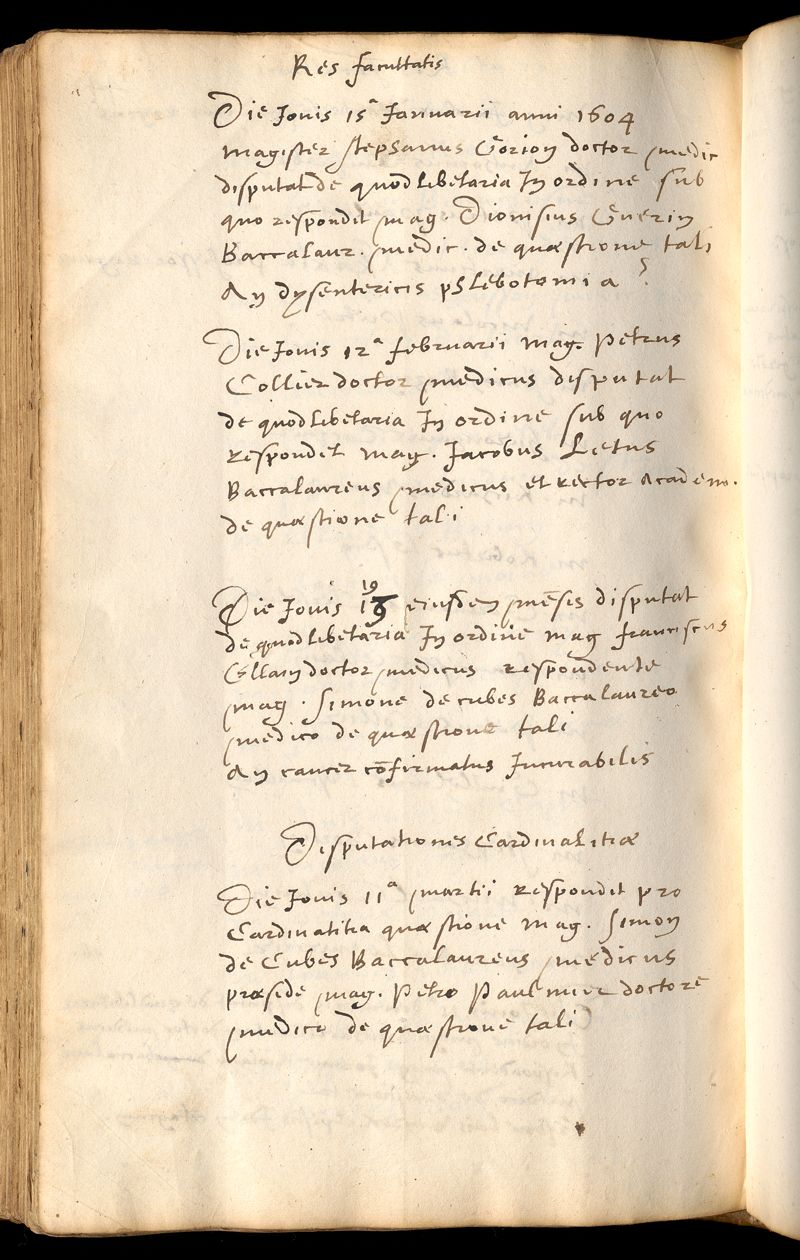 Res facultatis
Die Jovis 15ª Januarii anni 1604
magister stephanus Gorion doctor medic
disputat de quodlibetaria In ordine sub
quo respondit mag. Dionisius Guerin
Baccalaur. medic. de quæstione tali
An dysentericis phlebotomia ?
Die Jovis 12ª februarii mag. Petrus
Collier doctor medicus disputat
de quodlibetaria In ordine sub quo
respondet mag. Jacobus Letus
Baccalaureus medicus et rector Academ.
de quæstione tali
19
Die Jovis ejusdem mēsis disputat
de quodlibetaria In ordine mag franciscus
doctor medicus respondente
mag. Simone de cubes Baccalaureo
medico de quæstione tali
An cancer cōfirmatus Incurabilis
Disputationes Cardinalitiæ
Die Jovis 11ª martii respondit pro
Cardinalitia quæstione mag. Simon
de Cubes Baccalaureus medicus
præside mag. Petro Paulmier doctore
medico de quæstione tali